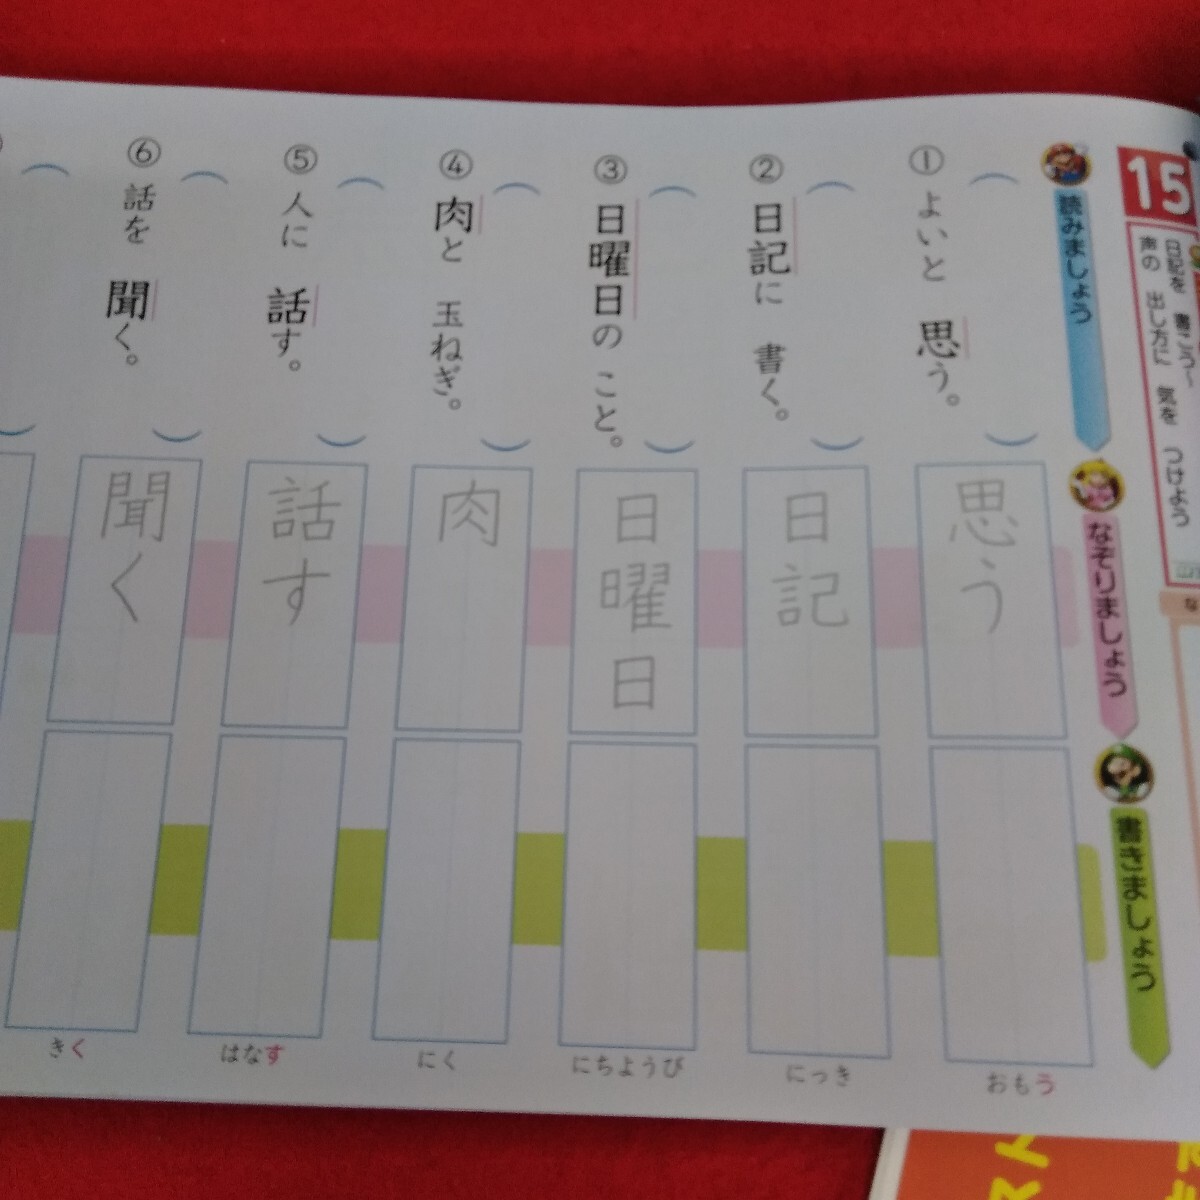 15
日記を 書こう～
声の 出し方に 気を つけよう
読みましょう
なぞりましょう
書きましょう
① よいと 思う。
思う
おもう
② 日記に 書く。
日記
にっき
③ 日曜日の こと。
日曜日
にちようび
④ 肉と 玉ねぎ。
肉
にく
⑤ 人に 話す。
話す
はなす
⑥ 話を 聞く。
聞く
きく